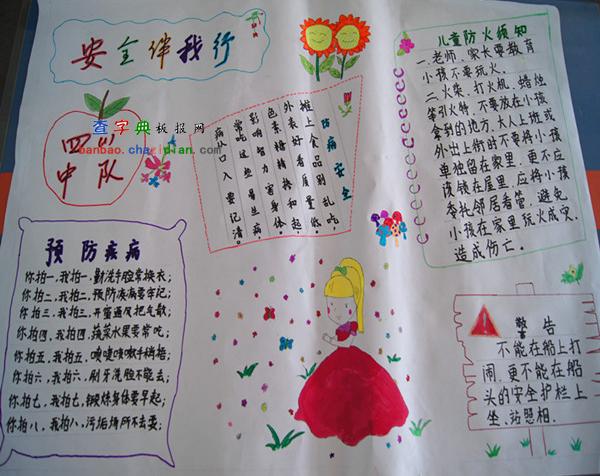 安全伴我行
四
中队
查字典 板报网
banbao.chazidian.com
预防疾病
你拍一,我拍一,勤洗手脸常换衣;
你拍二,我拍二,预防疾病要牢记;
你拍三,我拍三,开窗通风把气散;
你拍四,我拍四,蔬菜水果要常吃;
你拍五,我拍五,喷嚏咳嗽手稍捂;
你拍六,我拍六,刷牙洗脸不能丢;
你拍七,我拍七,锻炼身体要早起;
你拍八,我拍八,污垢场所不去耍;
防病安全
摊上食品别乱吃,
外表好看质量低。
色素糖精掺和起,
影响智力害身体。
常吃这些易生病,
病从口入要记清。
儿童防火须知
一.老师、家长要教育
小孩不要玩火。
二.火柴、打火机、蜡烛
等引火特,不要放在小孩
拿到的地方,大人上班或
外出上街时不要将小孩
单独留在家里,更不应
该锁在屋里,应将小孩
委托邻居看管,避免
小孩在家里玩火成灾,
造成伤亡。
警告
不能在船上打
闹,更不能在船
头的安全护栏上
坐、站照相.